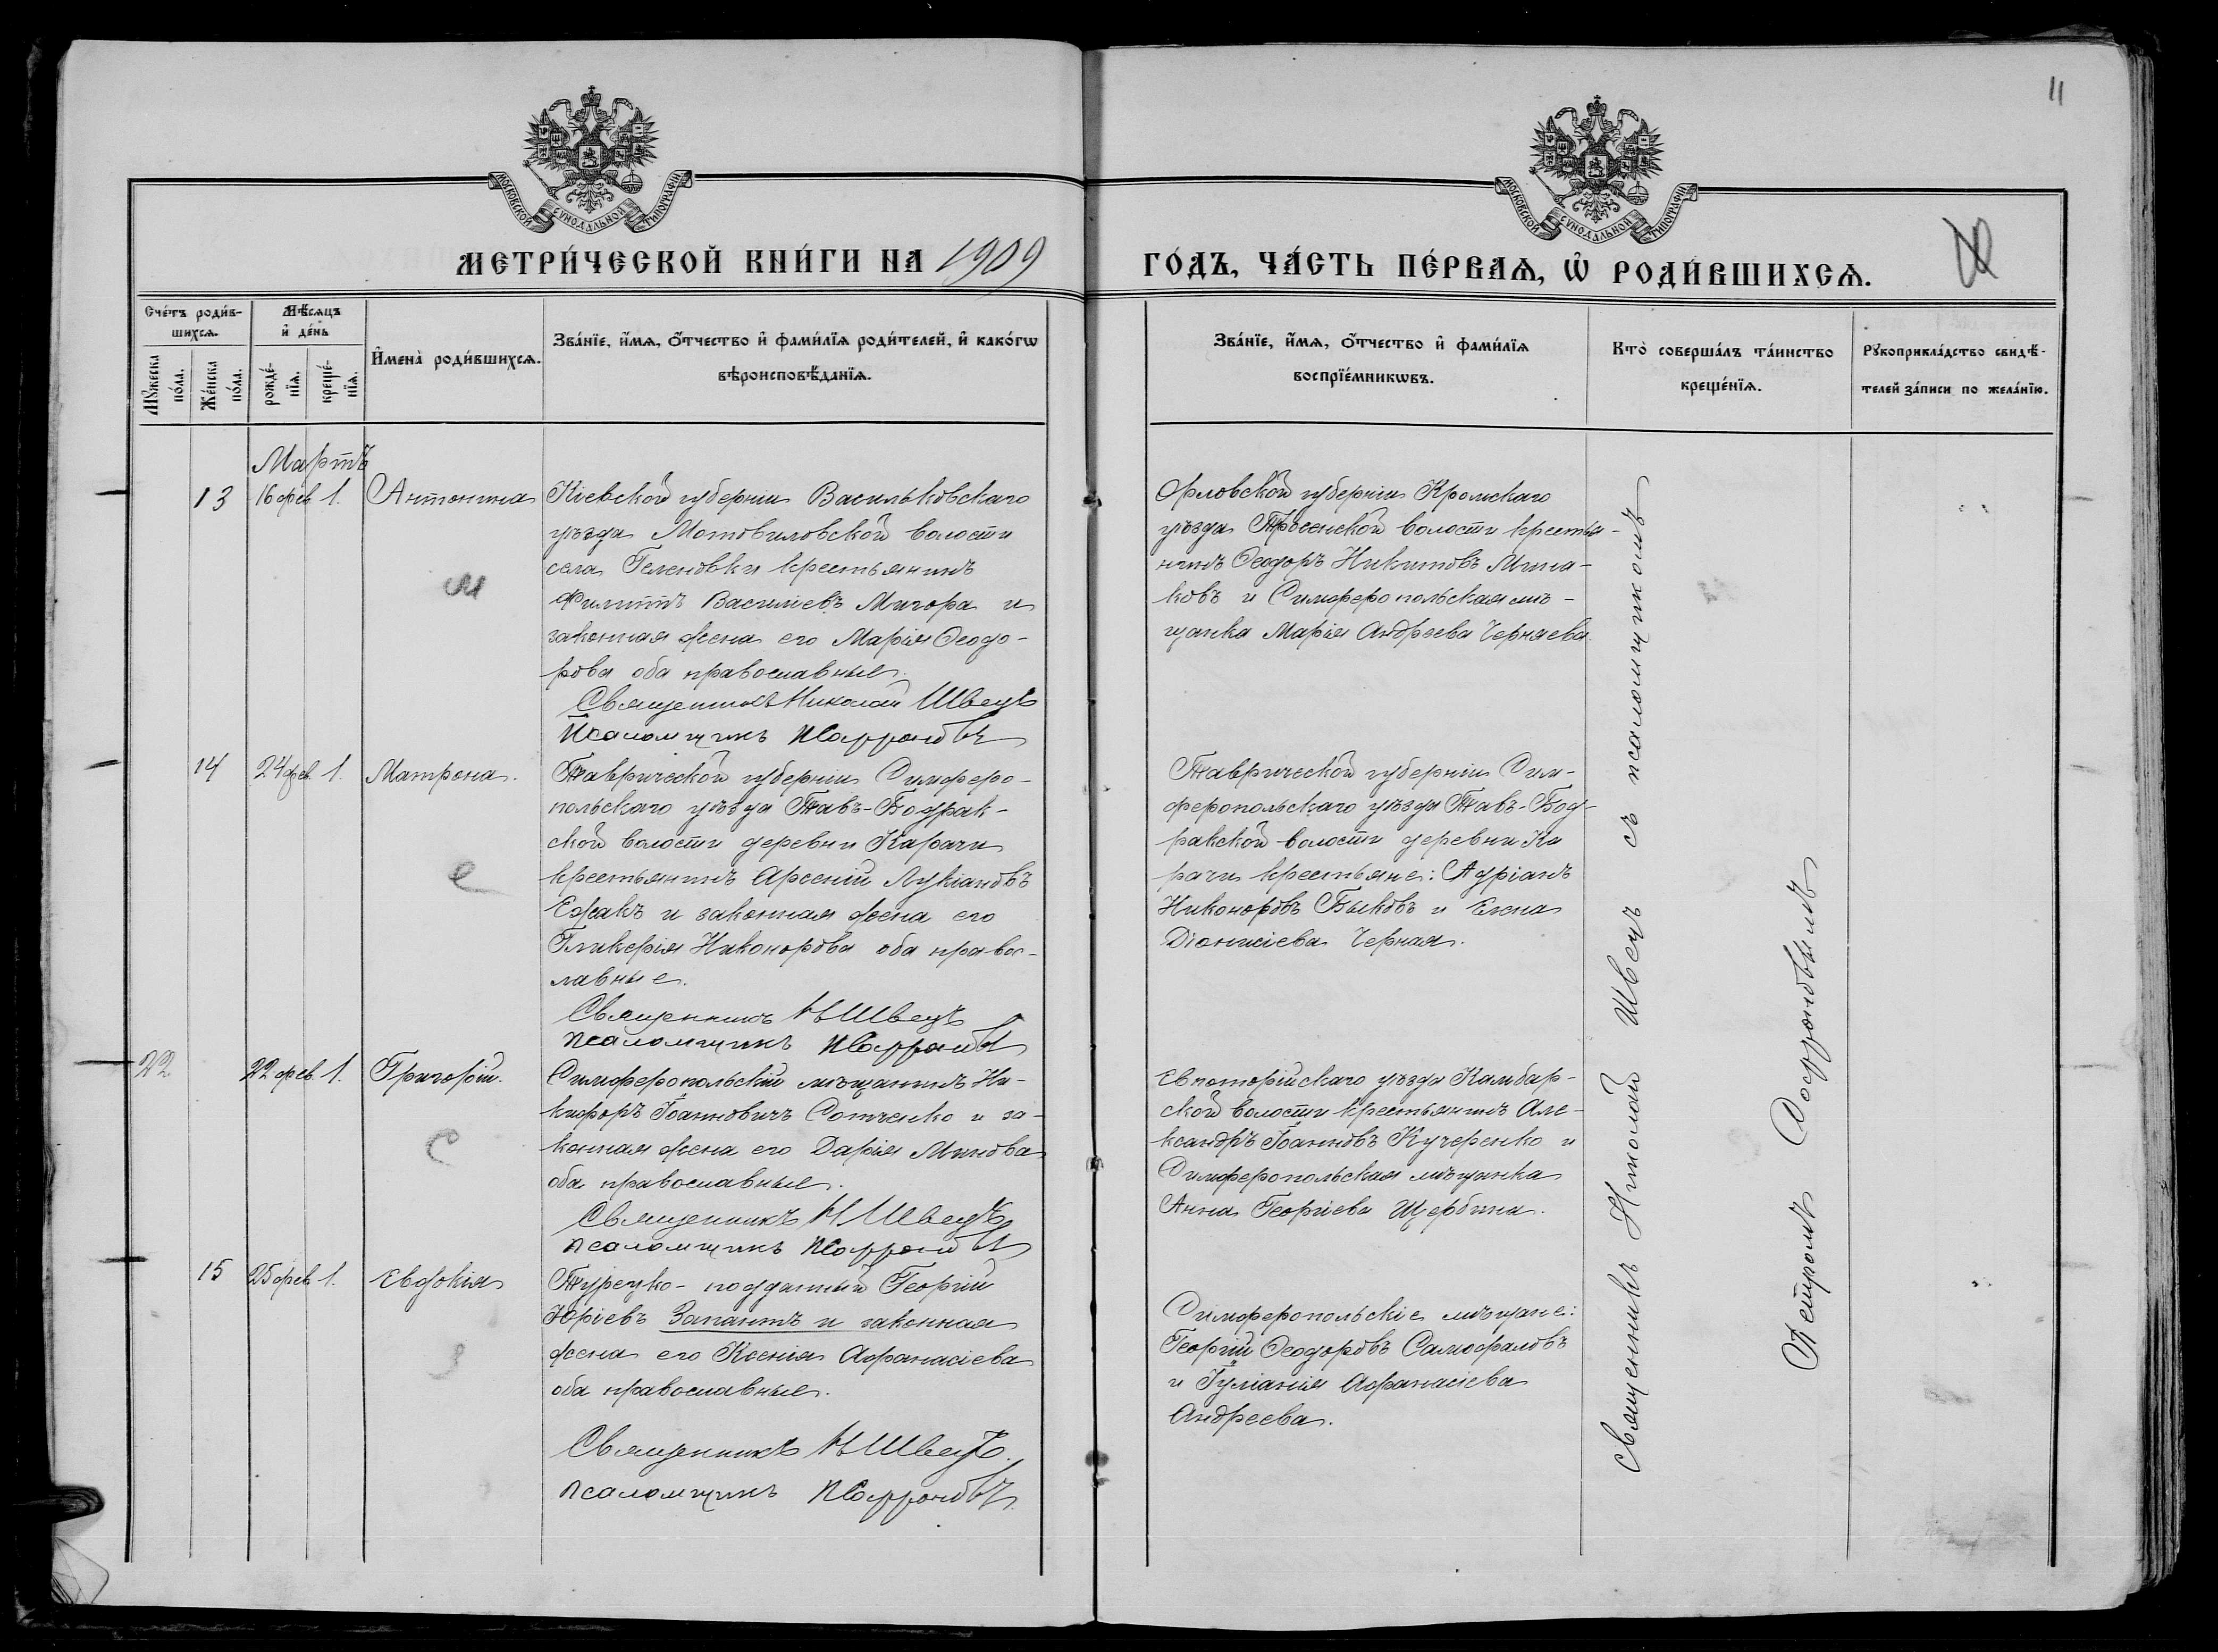 11
МОСКОВСКОЙ СУНОДАЛЬНОЙ ТИПОГРАФІИ
МОСКОВСКОЙ СУНОДАЛЬНОЙ ТИПОГРАФІИ
МЕТРИ́ЧЕСКОЙ КНИ́ГИ НА 1909
ГО́ДЪ, ЧА́СТЬ ПЕ́РВАѦ, Ѽ РОДИ́ВШИХСѦ.
Сче́тъ роди́в-
шихсѧ.
Мꙋ́жеска
по́ла.
Же́нска
по́ла.
Мѣ́сѧцъ
и҆ де́нь
рожде́-
нїѧ.
креще́-
нїѧ.
И҆мена̀ роди́вшихсѧ.
Зва́нїе, и҆́мѧ, ѻ҆́тчество и҆ фами́лїѧ роди́телей, и҆ како́гѡ
вѣроисповѣ́данїѧ.
Зва́нїе, и҆́мѧ, ѻ҆́тчество и҆ фами́лїѧ
воспрїе́мникѡвъ.
Кто̀ соверша́лъ та́инство
креще́нїѧ.
Рꙋкоприкла́дство свидѣ́-
телей за́писи по жела́нїю.
Мартъ
13 16 фев 1. Антонина
Кіевской губерніи Васильковскаго
уѣзда Мотовиловской волости
села Геленовки крестьянинъ
Филиппъ Василіевъ Мигора и
законная жена его Марія Ѳеодо-
рова оба православные.
Священникъ Николай Швецъ
Псаломщикъ П Софроновъ
Орловской губерніи Кромскаго
уѣзда волости крестья-
нинъ Ѳеодоръ Никитовъ Мина-
ковъ и Симферопольская мѣ-
щанка Марія Андреева Черняева
14 24 фев 1. Матрона.
Таврической губерніи Симферо-
польскаго уѣзда Тавъ-Бодрак-
ской волости деревни Карачи
крестьянинъ Арсеній Лукіановъ
Ежакъ и законная жена его
Гликерія Никонорова оба правос-
лавные.
Священникъ Н Швецъ
Псаломщикъ П Софроновъ
Таврической губерніи Сим-
феропольскаго уѣзда Тавъ-Бод-
ракской волости деревни Ка
рачи крестьяне: Адріанъ
Никоноровъ Быковъ и Елена
Діонисіева Черная.
22 22 фев. 1. Григорій.
Симферопольскій мѣщанинъ Ни-
кифоръ Іоанновичъ Сотченко и за-
конная жена его Дарія Минова
оба православные.
Священникъ Н Швецъ
Псаломщикъ П Софроновъ
Евпаторійскаго уѣзда Камбар-
ской волости крестьянинъ Але-
ксандръ Іоанновъ Кучеренко и
Симферопольская мѣщанка
Анна Георгіева Щербина.
15 25 фев 1. Евдокія
Турецко-подданный Георгій
Юріевъ Запантъ и законная
жена его Ксенія Афанасіева
оба православные.
Священникъ Н Швецъ.
Псаломщикъ П Софроновъ
Симферопольскіе мѣщане:
Георгій Ѳеодоровъ Самофаловъ
и Іуліанія Афанасіева
Андреева.
Священникъ Николай Швецъ съ псаломщикомъ
Петромъ Софроновымъ